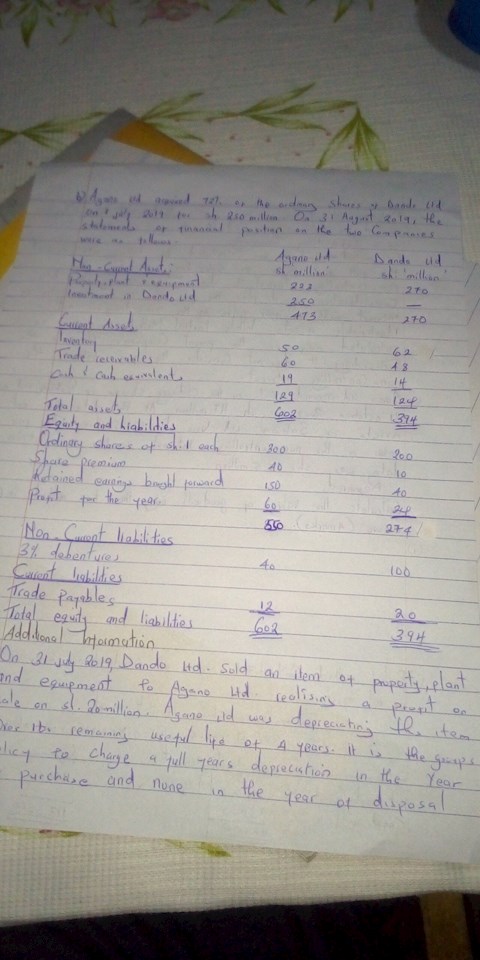 b) Agano ltd acquired 75% of the ordinary shares of Dando Ltd
on 1 July 2019 for sh 250 million. On 31 August 2019, the
statements of financial position of the two Companies
were as follows
Agano ltd Dando Ltd
sh million sh 'million'
Non-Current Assets:
Property plant & equipment 223 270
Investment in Dando Ltd 250 —
473 270
Current Assets
Inventory 50 62
Trade receivables 60 48
Cash & Cash equivalents 19 14
129 124
Total assets 602 394
Equity and liabilities
Ordinary shares of sh.1 each 300 200
Share premium 40 10
Retained earnings brought forward 150 40
Profit for the year 60 24
550 274
Non-Current liabilities
3% debentures 40 100
Current liabilities
Trade Payables 12 20
Total equity and liabilities 602 394
Additional Information
On 31 July 2019, Dando Ltd. sold an item of property, plant
and equipment to Agano Ltd. realising a profit on
sale on sh. 20 million. Agano ltd was depreciating the item
over its remaining useful life of 4 years. It is the groups
policy to charge a full years depreciation in the year
purchase and none in the year of disposal